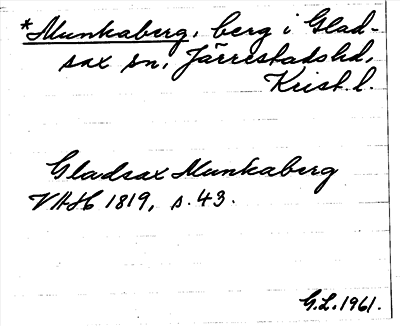 *Munkaberg, berg i Glad-
sax sn, Järrestads hd,
Krist. l.
Gladsax Munkaberg
VAH 1819, s. 43.
G.L. 1961.